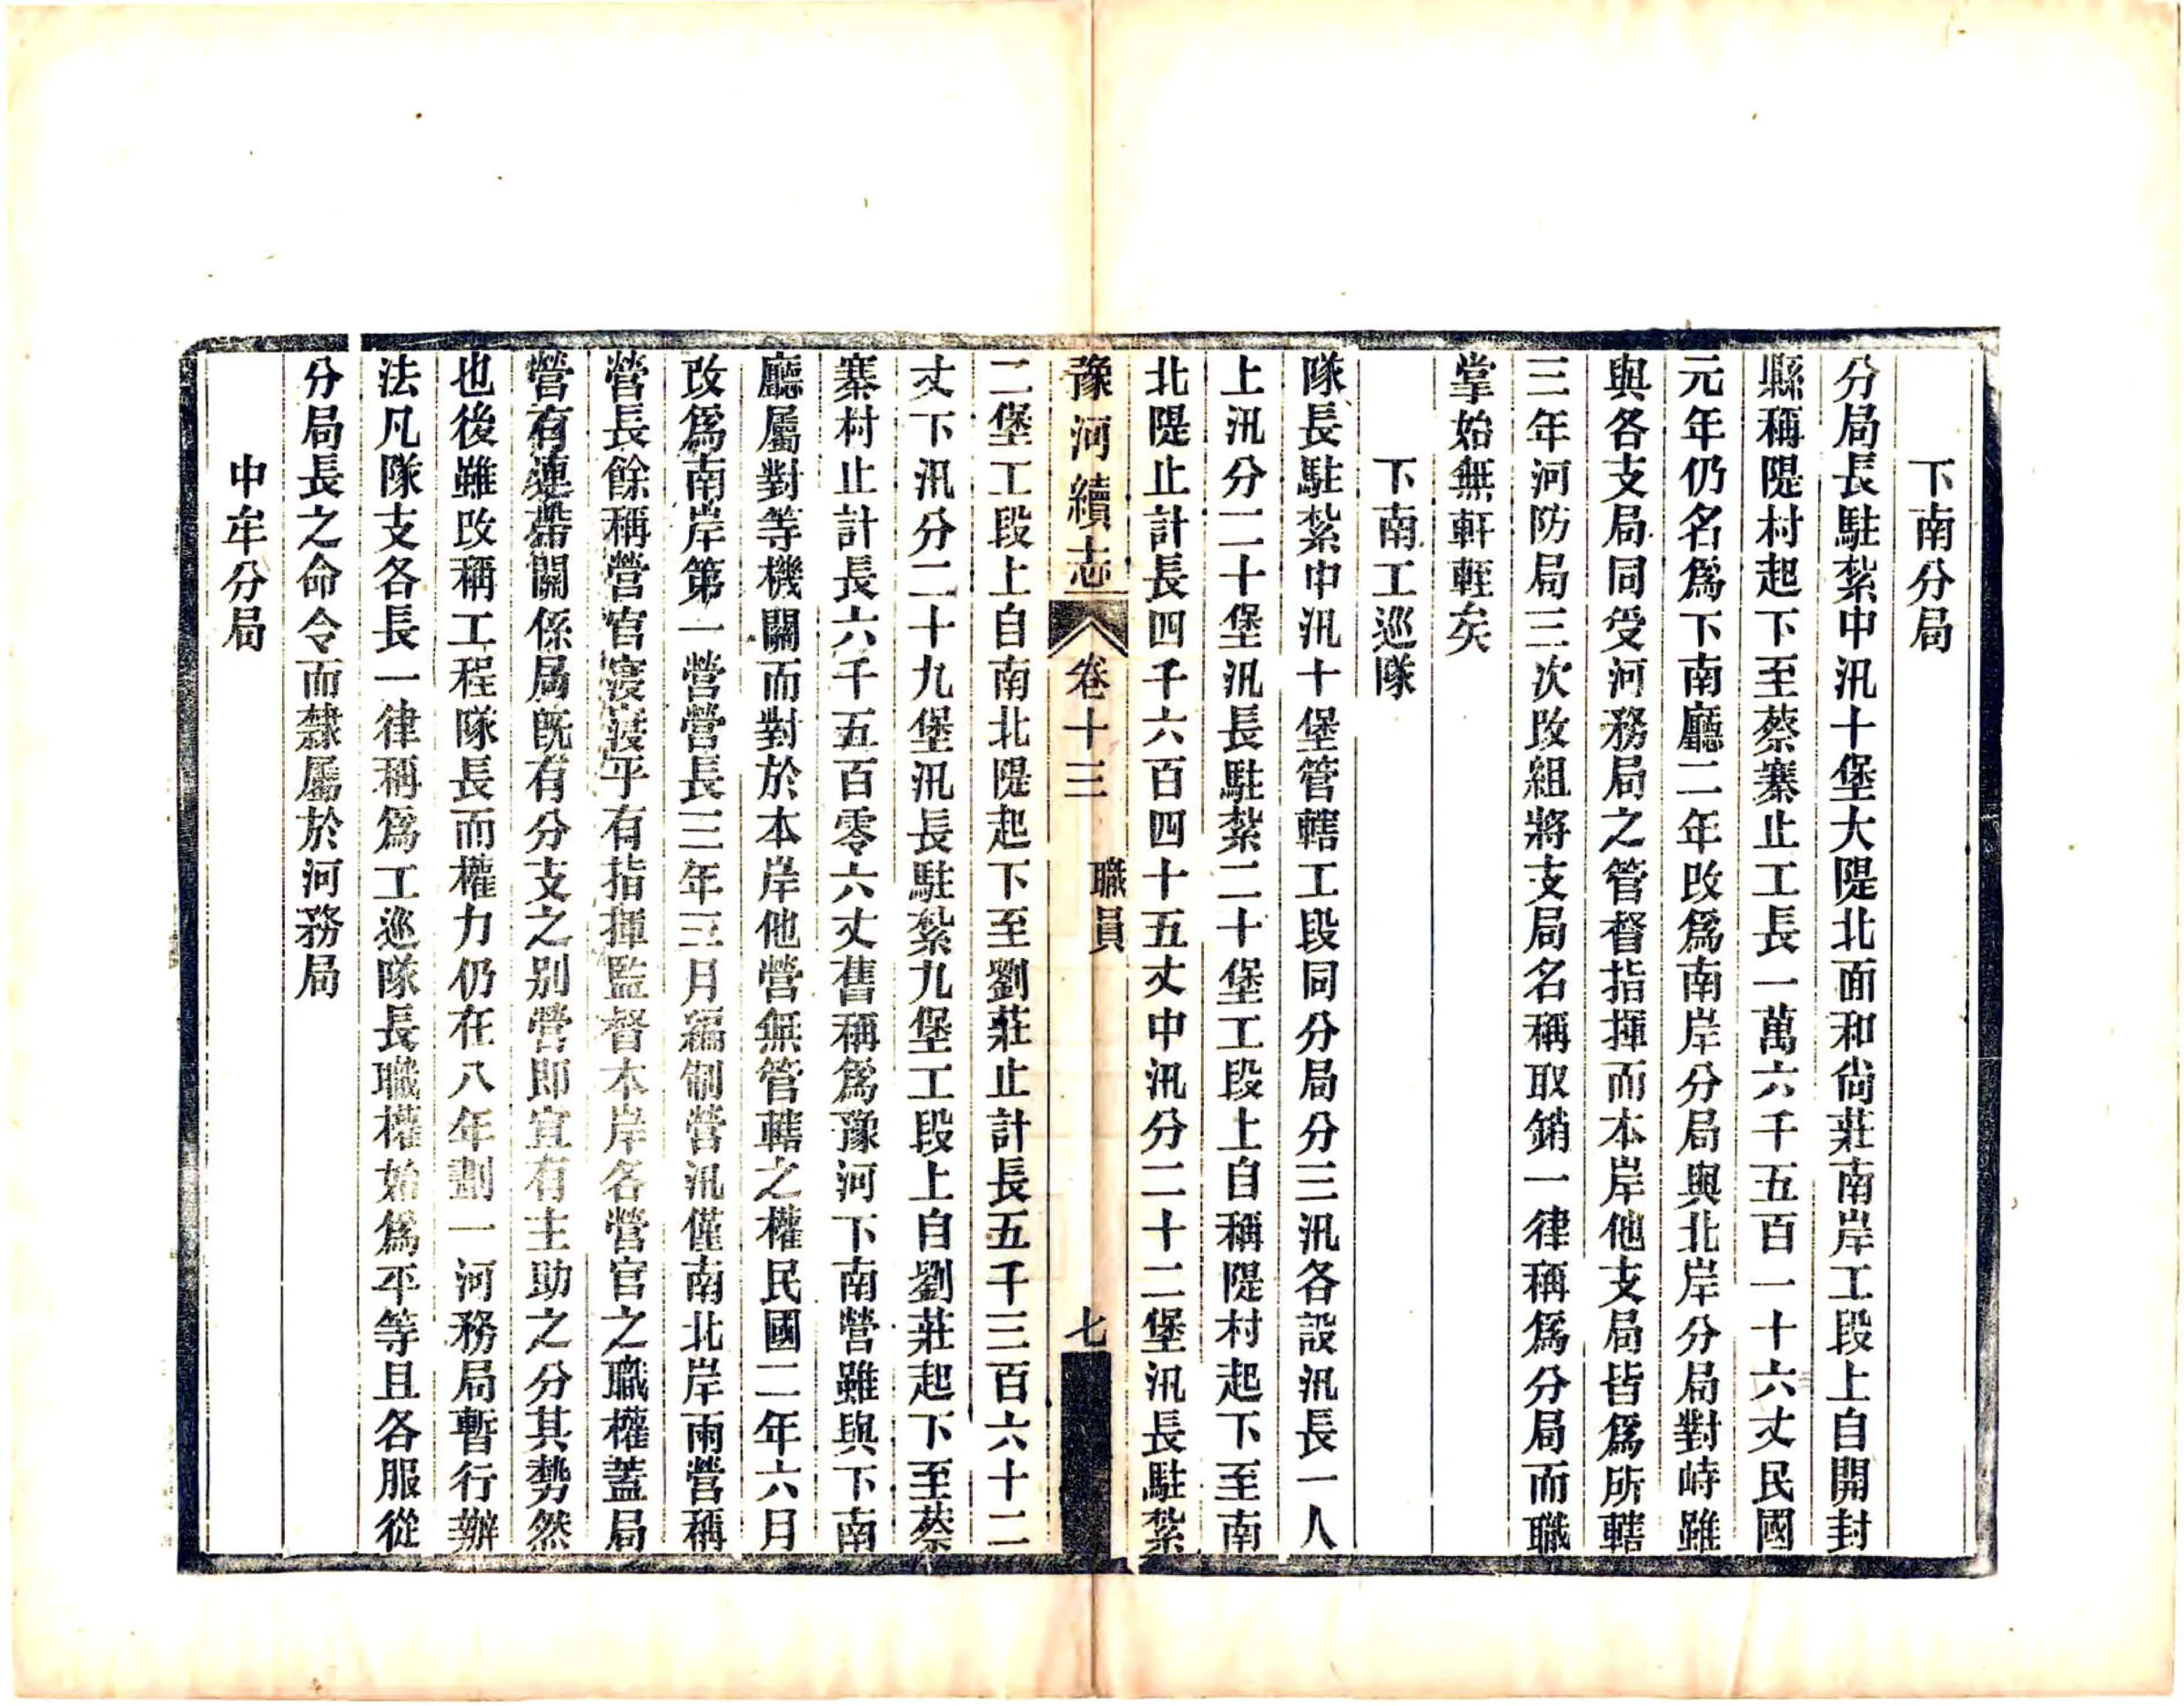 下南分局
分局長駐紮中汛十堡大隄北面和尙莊南岸工段上自開封
縣稱隄村起下至蔡寨止工長一萬六千五百一十六丈民國
元年仍名爲下南廳二年改爲南岸分局與北岸分局對峙雖
與各支局同受河務局之管督指揮而本岸他支局皆爲所轄
三年河防局三次改組將支局名稱取銷一律稱爲分局而職
掌始無軒輊矣
下南工巡隊
隊長駐紮中汛十堡管轄工段同分局分三汛各設汛長一人
上汛分二十堡汛長駐紮二十堡工段上自稱隄村起下至南
北隄止計長四千六百四十五丈中汛分二十二堡汛長駐紮
豫河續志 卷十三 職員 七
二堡工段上自南北隄起下至劉莊止計長五千三百六十二
丈下汛分二十九堡汛長駐紮九堡工段上自劉莊起下至蔡
寨村止計長六千五百零六丈舊稱爲豫河下南營雖與下南
廳屬對等機關而對於本岸他營無管轄之權民國二年六月
改爲南岸第一營營長三年三月編制營汛僅南北岸兩營稱
營長餘稱營官寖寖乎有指揮監督本岸各營官之職權蓋局
營有連帶關係局旣有分支之別營卽宜有主助之分其勢然
也後雖改稱工程隊長而權力仍在八年劃一河務局暫行辦
法凡隊支各長一律稱爲工巡隊長職權始爲平等且各服從
分局長之命令而隸屬於河務局
中牟分局